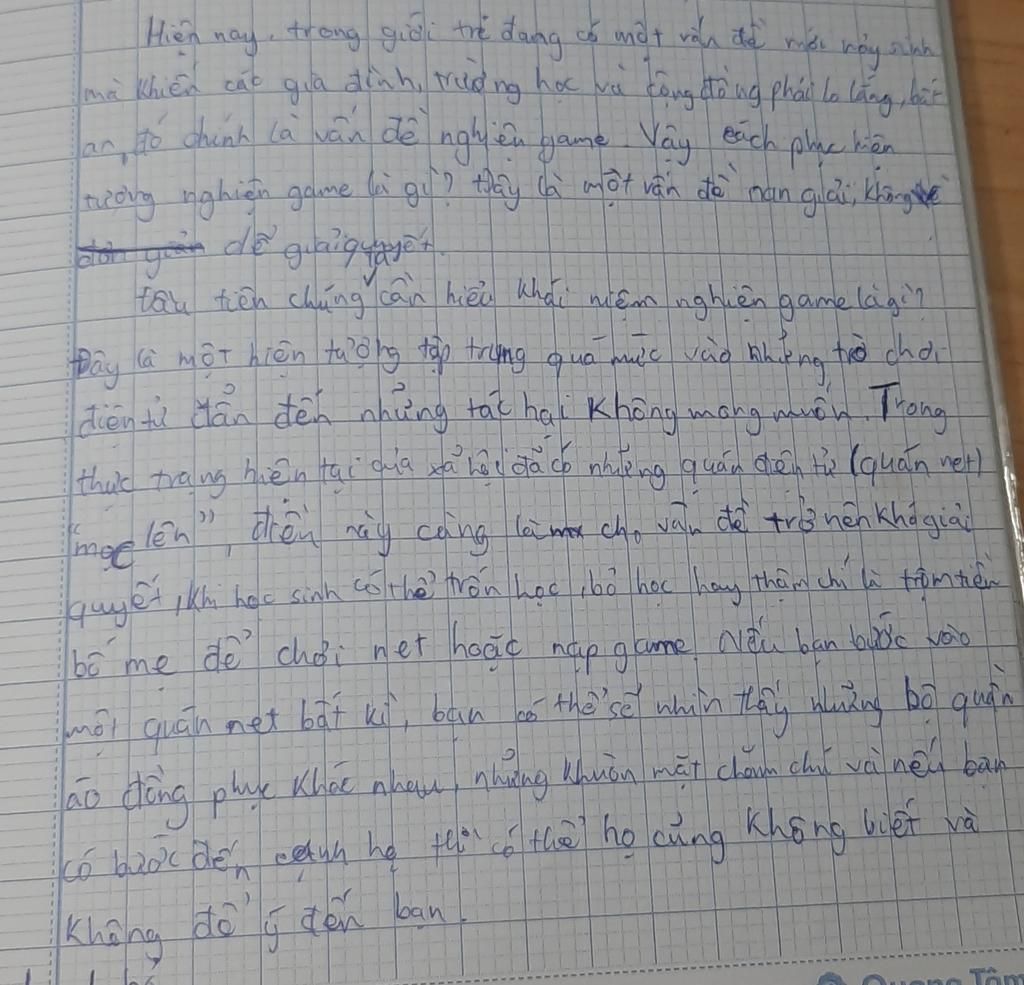 Hiện nay, trong giới trẻ đang có một vấn đề mới nảy sinh
mà khiến các gia đình, trường học và cộng đồng phải lo lắng, bất
an, đó chính là vấn đề nghiện game. Vậy cách phục hiện
tượng nghiện game là gì? Đây là một vấn đề nan giải, không
dễ giải quyết.
Đầu tiên chúng cần hiểu khái niệm nghiện game là gì?
Đây là một hiện tượng tập trung quá mức vào những trò chơi
điện tử dẫn đến những tác hại không mong muốn. Trong
thực trạng hiện tại của xã hội đã có những quán điện tử (quán net)
"mọc lên", điều này càng làm cho vấn đề trở nên khó giải
quyết, khi học sinh có thể trốn học, bỏ học hay thậm chí là trộm tiền
bố mẹ để chơi net hoặc nạp game. Nếu bạn bước vào
một quán net bất kì, bạn có thể sẽ nhìn thấy những bộ quần
áo đồng phục khác nhau, những khuôn mặt chăm chú và nếu bạn
có bước đến cạnh họ thì có thể họ cũng không biết và
không để ý đến bạn.
Quang Tâm